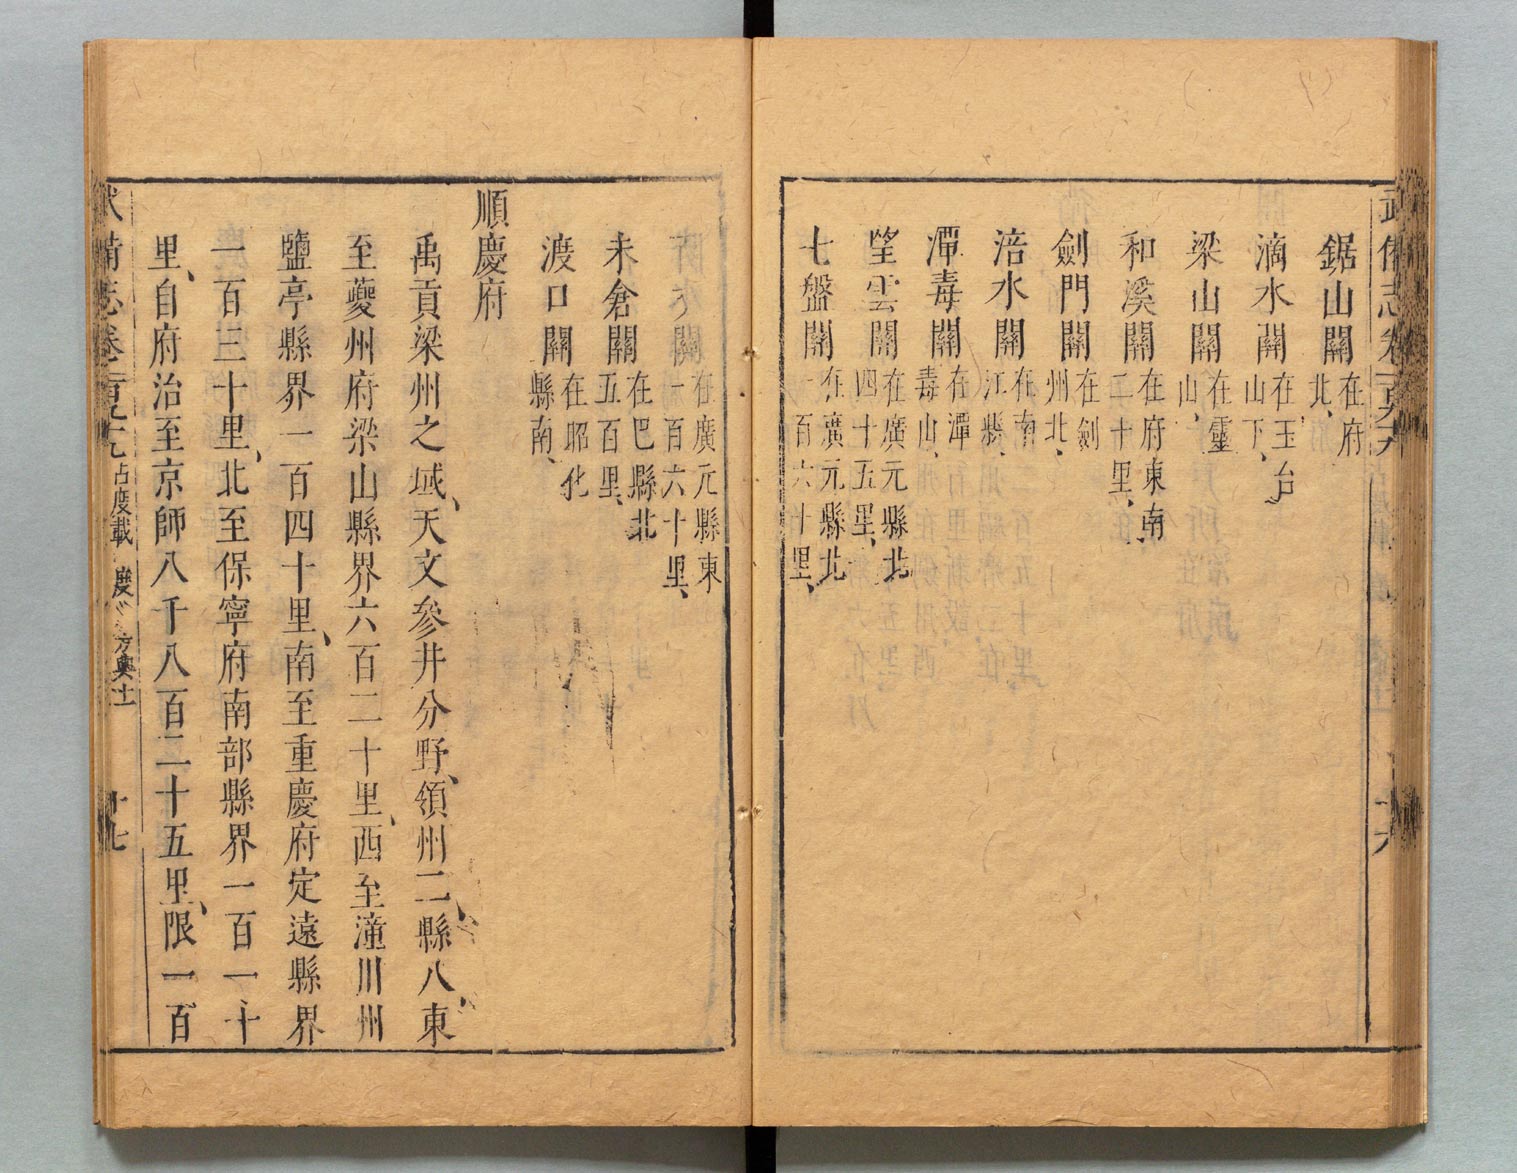 鋸山關在府北、
滴水關在玉台山下、
梁山關在靈山、
和溪關在府東南二十里、
劍門關在劍州北、
涪水關在南江縣、
潭毒關在潭毒山、
望雲關在廣元縣北四十五里、
七盤關在廣元縣北一百六十里、
在廣元縣東一百六十里、
未倉關在巴縣北五百里、
渡口關在昭化縣南、
順慶府
禹貢梁州之域、天文參井分野、領州二、縣八、東
至夔州府梁山縣界六百二十里、西至潼川州
鹽亭縣界一百四十里、南至重慶府定遠縣界
一百三十里、北至保寧府南部縣界一百一十
里、自府治至京師八千八百二十五里、限一百
武備志卷一百九十九 占度載 度 方輿十一 十七